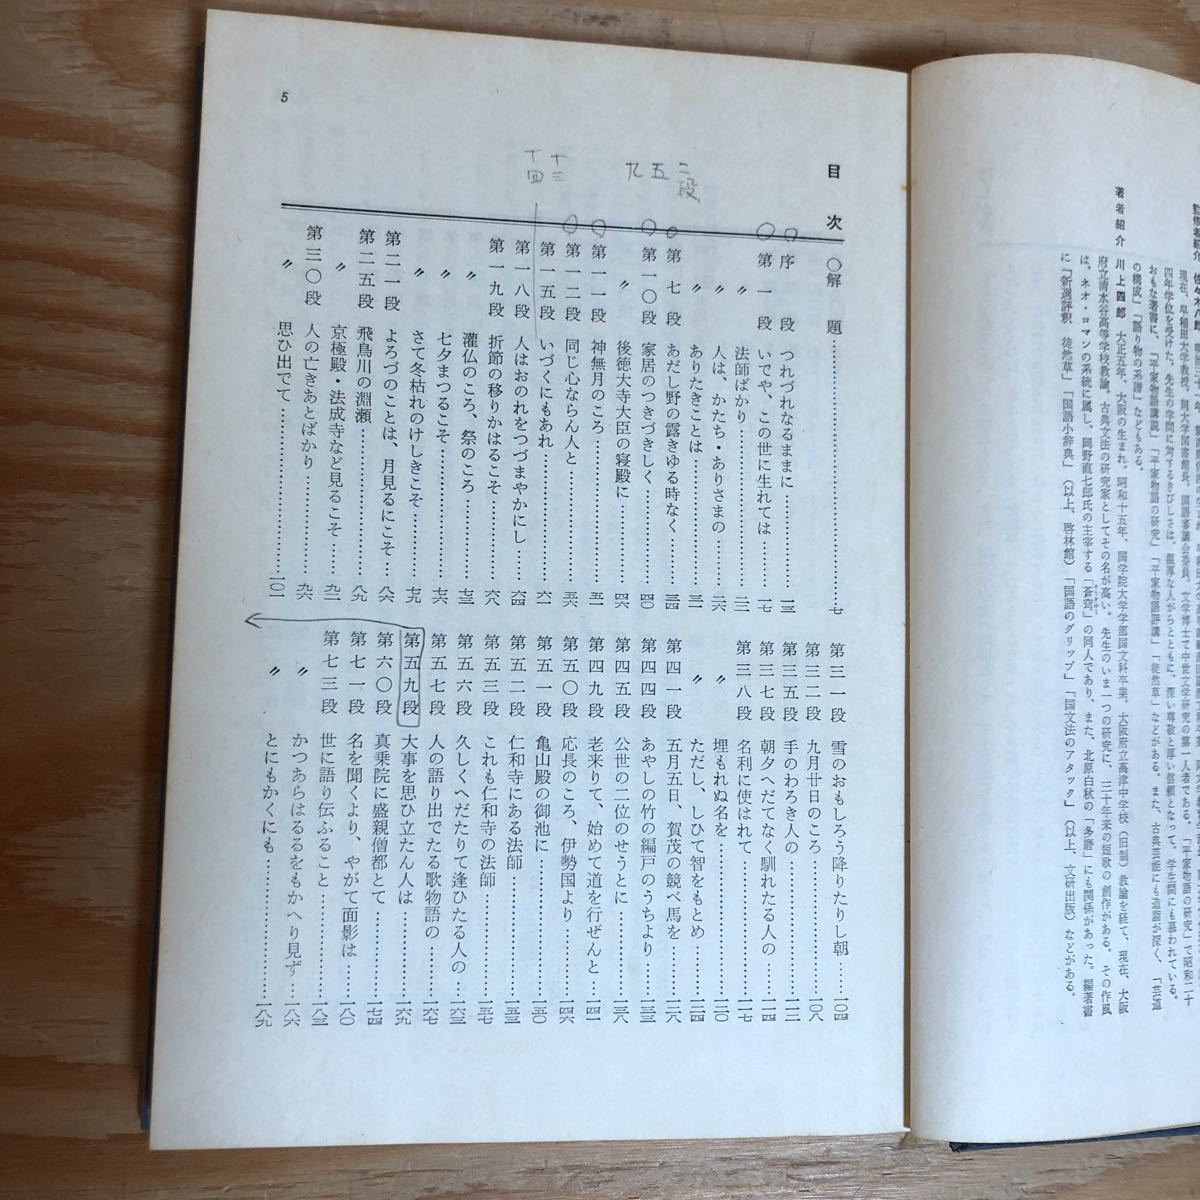 四年学位を受けた。先生の学問に対するきびしさは、温厚な人がらとともに、深い尊敬と厚い信頼となって、学生間にも慕われている。
おもな著書に、「平家物語講説」「平家物語の研究」「平家物語評講」「徒然草」などがある。また、古典芸能にも造詣が深く、「芸道
の構成」「語り物の系譜」などもある。
著者紹介 川上四郎 大正五年、大阪の生まれ。昭和十五年、国学院大学学部国文科卒業。大阪府立高津中学校(旧制)教諭を経て、現在、大阪
府立清水谷高等学校教諭。古典文法の研究家としてその名が高い。先生のいま一つの研究に、三十年来の短歌の創作がある。その作風
は、ネオ・ロマンの系統に属し、岡野直七郎氏の主宰する「蒼穹」の同人であり、また、北原白秋の「多磨」にも関係があった。編著書
に「新選評釈 徒然草」「国語小辞典」(以上、啓林館)「国語のグリップ」「国文法のアタック」(以上、文研出版)などがある。
5
目次
九五二段
十三
十四
〇解題……七
序段 つれづれなるままに……一三
第一段 いでや、この世に生れては……一七
〃 法師ばかり……二三
〃 人は、かたち・ありさまの……二六
〃 ありたきことは……三一
第七段 あだし野の露きゆる時なく……三四
第一〇段 家居のつきづきしく……四〇
〃 後徳大寺大臣の寝殿に……四六
第一一段 神無月のころ……五一
第一二段 同じ心ならん人と……五六
第一五段 いづくにもあれ……六一
第一八段 人はおのれをつづまやかにし……六四
第一九段 折節の移りかはるこそ……六八
〃 灌仏のころ、祭のころ……七三
〃 七夕まつるこそ……七六
〃 さて冬枯れのけしきこそ……七九
第二一段 よろづのことは、月見るにこそ……八六
第二五段 飛鳥川の淵瀬……八九
〃 京極殿・法成寺など見るこそ……九二
第三〇段 人の亡きあとばかり……九六
〃 思ひ出でて……一〇一
第三一段 雪のおもしろう降りたりし朝……一〇四
第三二段 九月廿日のころ……一〇八
第三五段 手のわろき人の……一一二
第三七段 朝夕へだてなく馴れたる人の……一一四
第三八段 名利に使はれて……一一七
〃 埋もれぬ名を……一二〇
〃 ただし、しひて智をもとめ……一二四
第四一段 五月五日、賀茂の競べ馬を……一二八
第四四段 あやしの竹の編戸のうちより……一三三
第四五段 公世の二位のせうとに……一三八
第四九段 老来りて、始めて道を行ぜんと……一四一
第五〇段 応長のころ、伊勢国より……一四六
第五一段 亀山殿の御池に……一五〇
第五二段 仁和寺にある法師……一五三
第五三段 これも仁和寺の法師……一五七
第五六段 久しくへだたりて逢ひたる人の……一六三
第五七段 人の語り出でたる歌物語の……一六七
第五九段 大事を思ひ立たん人は……一六九
第六〇段 真乗院に盛親僧都とて……一七四
第七一段 名を聞くより、やがて面影は……一八〇
第七三段 世に語り伝ふること……一八三
〃 かつあらはるるをもかへり見ず……一八六
〃 とにもかくにも……一八九